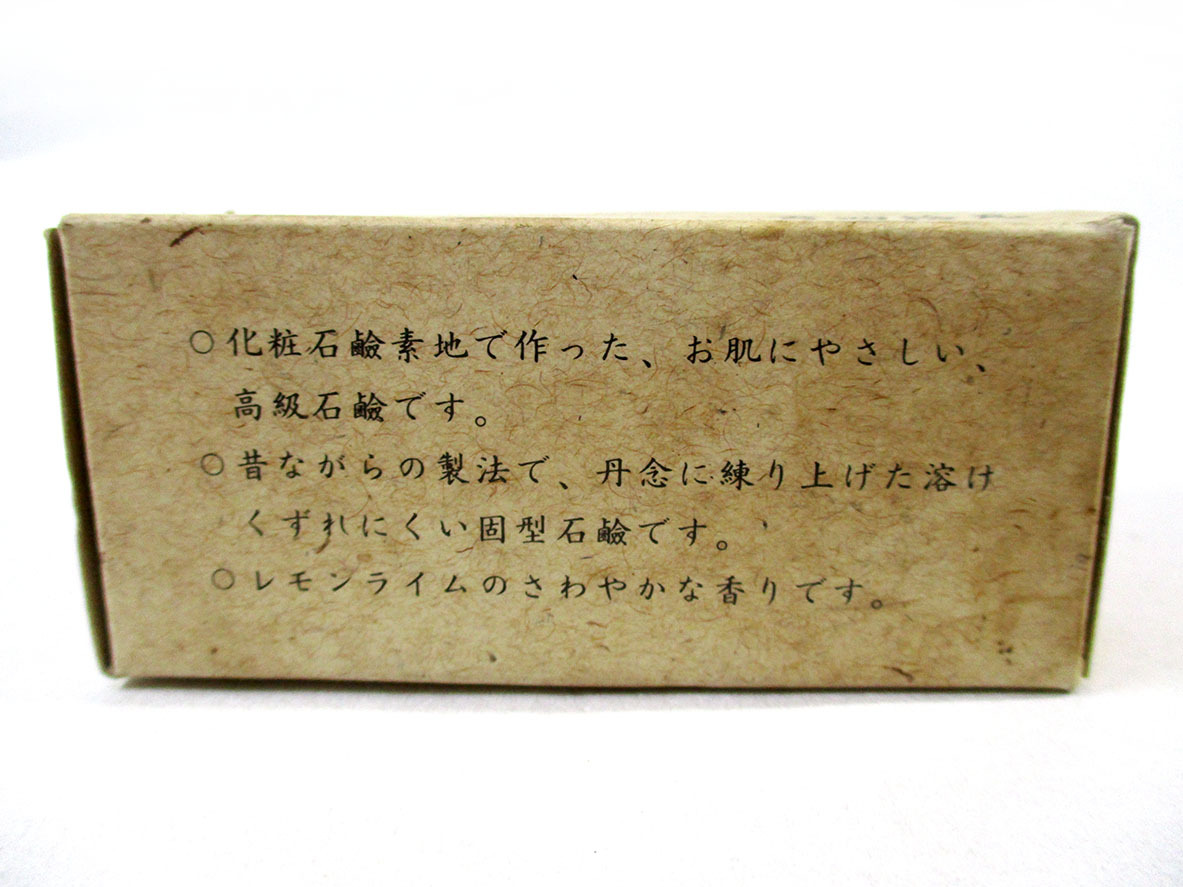 ○化粧石鹼素地で作った、お肌にやさしい、
高級石鹼です。
○昔ながらの製法で、丹念に練り上げた溶け
くずれにくい固型石鹼です。
○レモンライムのさわやかな香りです。